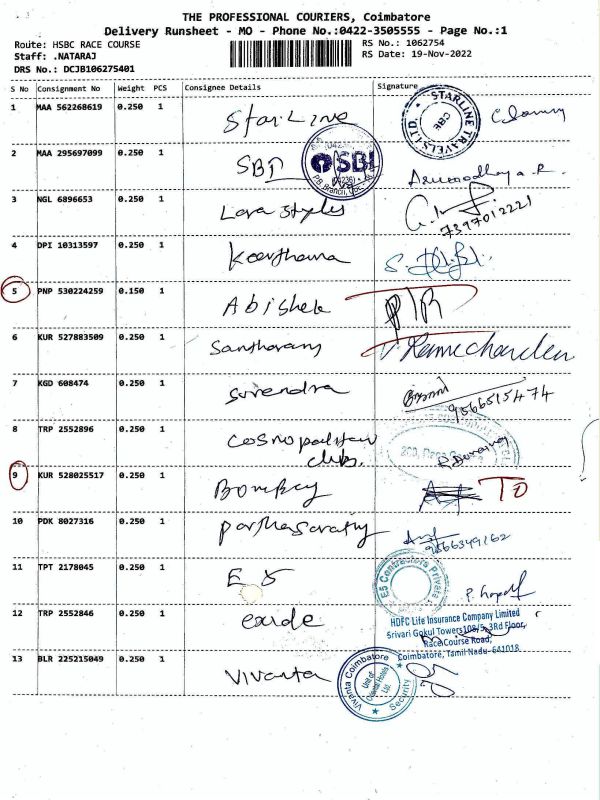 THE PROFESSIONAL COURIERS, Coimbatore
Delivery Runsheet - MO - Phone No.:0422-3505555 - Page No.:1
Route: HSBC RACE COURSE
RS No.: 1062754
Staff: .NATARAJ
RS Date: 19-Nov-2022
DRS No.: DCJB106275401
S No Consignment No Weight PCS Consignee Details Signature
1 MAA 562268619 0.250 1 StarLine
STARLINE TRAVELS LTD. CBE
2 MAA 295697099 0.250 1 SBI
SBI
Arunodhaya R.
3 NGL 6896653 0.250 1 Lara styles
7397012221
4 DPI 10313597 0.250 1 Keerthana
5 PNP 530224259 0.150 1 Abishek
6 KUR 527883509 0.250 1
Ramachandran
7 KGD 608474 0.250 1 Surendra
9566515474
8 TRP 2552896 0.250 1 Cosmopolitan
club.
9 KUR 528025517 0.250 1 Bombay TO
10 PDK 8027316 0.250 1 Parthasarathy
9566349162
11 TPT 2178045 0.250 1 E 5
E5 Contractors Private
12 TRP 2552846 0.250 1 exide
HDFC Life Insurance Company Limited
Srivari Gokul Towers 108/5, 3Rd Floor,
Race Course Road,
Coimbatore, Tamil Nadu- 641018
13 BLR 225215049 0.250 1 Vivanta
Vivanta Coimbatore
Unit of
Oriental Hotels
Ltd.
Security